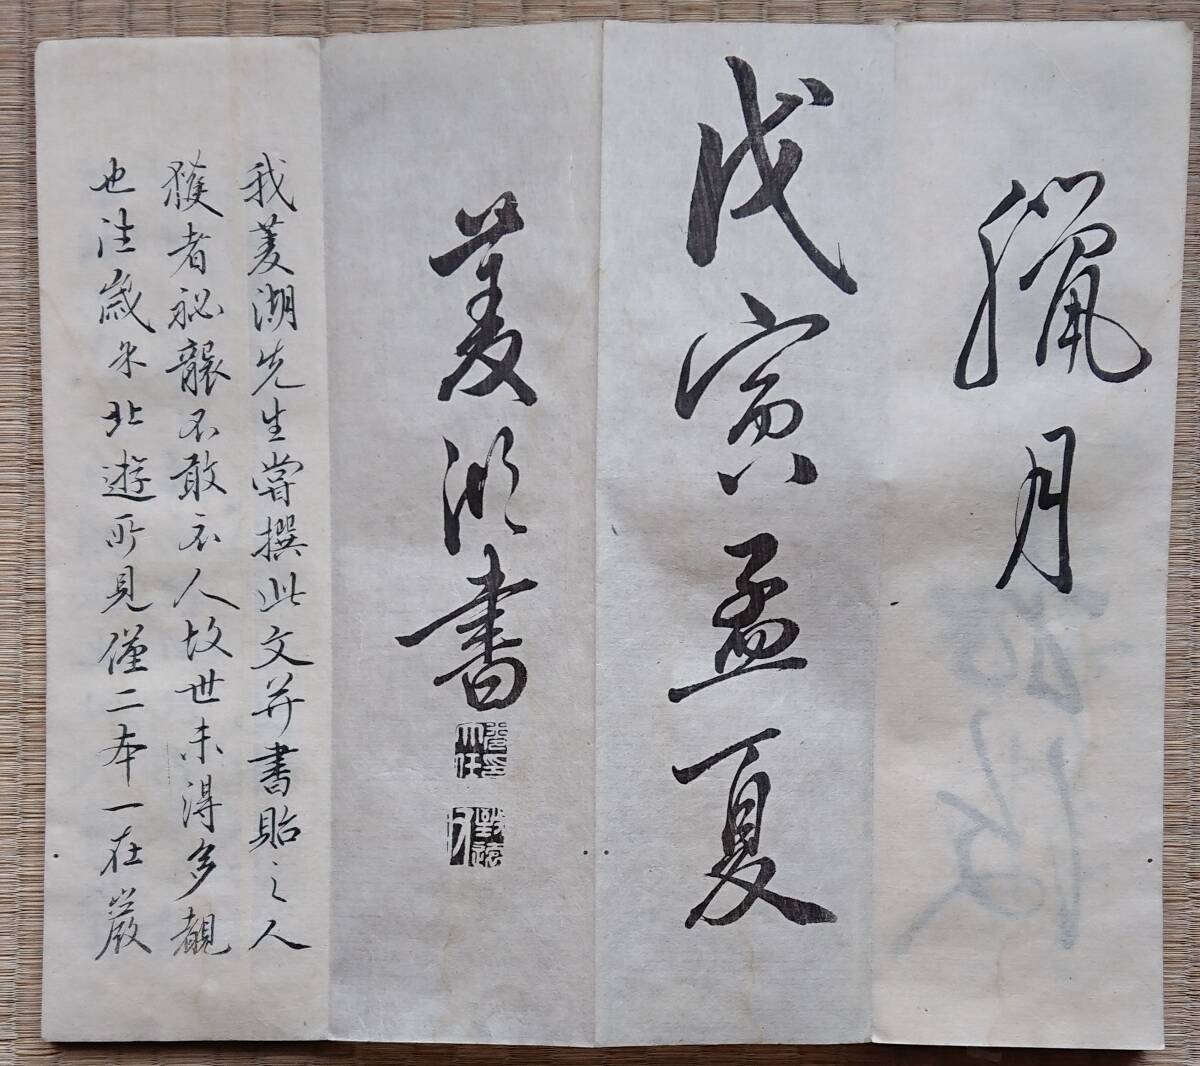 臘月
戊寅孟夏
菱湖書
我菱湖先生嘗撰此文并書貽之人
獲者祕襲不敢示人故世未得多覩
也往歳米北遊所見僅二本一在巖